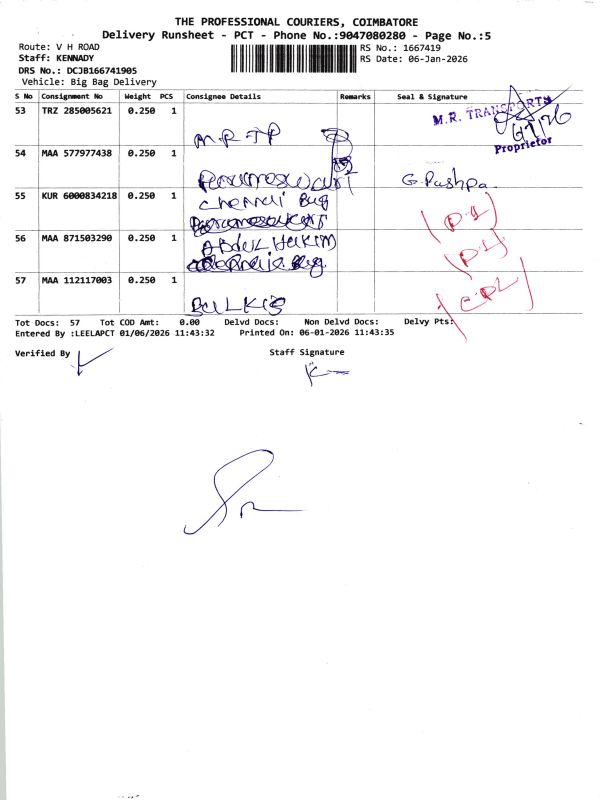 THE PROFESSIONAL COURIERS, COIMBATORE
Delivery Runsheet - PCT - Phone No.:9047080280 - Page No.:5
Route: V H ROAD
Staff: KENNADY
DRS No.: DCJB166741905
Vehicle: Big Bag Delivery
RS No.: 1667419
RS Date: 06-Jan-2026
S No Consignment No Weight PCS Consignee Details Remarks Seal & Signature
53 TRZ 285005621 0.250 1
M R TP
M.R. TRANSPORTS
Proprietor
54 MAA 577977438 0.250 1
G. Pushpa.
55 KUR 6000834218 0.250 1
Chennai Bag
56 MAA 871503290 0.250 1
Abdul Hakim
57 MAA 112117003 0.250 1
BALKIS
Tot Docs: 57 Tot COD Amt: 0.00 Delvd Docs: Non Delvd Docs: Delvy Pts:
Entered By :LEELAPCT 01/06/2026 11:43:32 Printed On: 06-01-2026 11:43:35
Verified By
Staff Signature